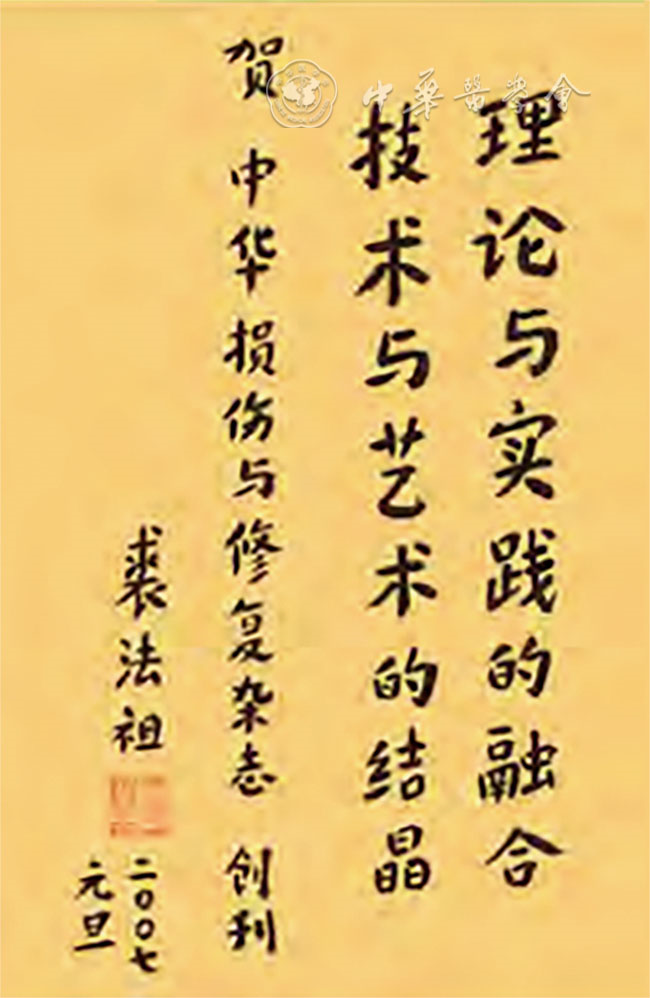 理论与实践的融合
技术与艺术的结晶
贺 中华损伤与修复杂志 创刊
裘法祖
二〇〇七
元旦
中华醫学會